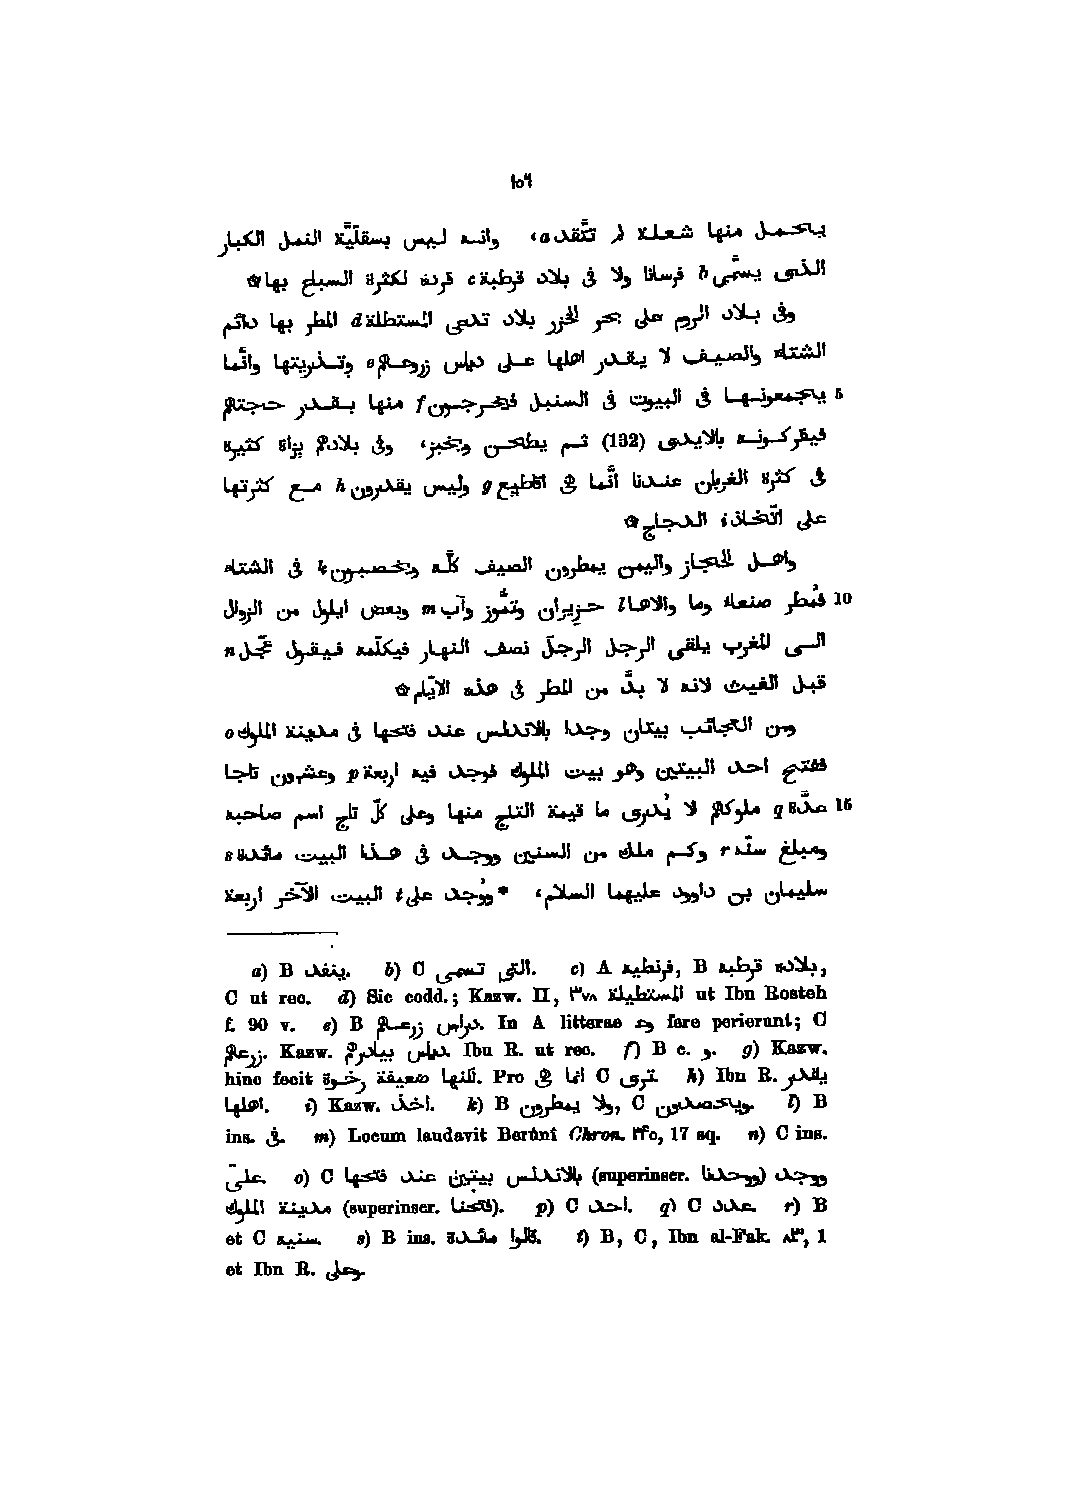 ١٥٦
يحمل منها شعلة لم تتّقد a، وانه ليس بسقلّيّة النمل الكبار
الذى يسمّى b فرسانا ولا فى بلاد قرطبة c قرنه لكثرة السباع بها ۞
وفى بلاد الروم على بحر الخزر بلاد تدعى المستطلة d المطر بها دائم
الشتاء والصيف لا يقدر اهلها على دياس زروعهم e وتذريتها وانّما
يجمعونها فى البيوت فى السنبل فيخرجون f منها بقدر حاجتهم 5
فيفركونه بالايدى (132) ثم يطحن ويخبز، وفى بلادهم بزاة كثيرة
فى كثرة الغربان عندنا انّما هى اقاطيع g وليس يقدرون h مع كثرتها
على اتّخاذ i الدجاج ۞
واهل الحجاز واليمن يمطرون الصيف كلّه ويخصبون k فى الشتاء
فمُطر صنعاء وما والاها l حزيران وتمّوز وآب m وبعض ايلول من الزوال 10
الى المغرب يلقى الرجل الرجل نصف النهار فيكلّمه فيقول عجّل n
قبل الغيث لانه لا بدّ من المطر فى هذه الايّام ۞
ومن العجائب بيتان وجدا بالاندلس عند فتحها فى مدينة الملوك o
ففتح احد البيتين وهو بيت الملوك فوجد فيه اربعة p وعشرون تاجا
عدّة q ملوكهم لا يُدرى ما قيمة التاج منها وعلى كلّ تاج اسم صاحبه 15
ومبلغ سنّه r وكم ملك من السنين ووجد فى هذا البيت مائدة s
سليمان بن داوود عليهما السلام، * ووُجد على t البيت الآخر اربعة
a) B ينفد. b) C التى تسمى. c) A فرنطيه, B بلاده قرطبه,
C ut rec. d) Sic codd.; Kazw. II, ٣٧٨ المستطيلة ut Ibn Rosteh
f. 90 v. e) B دراس زرعهم. In A litterae وع fere perierunt; C
زرعهم. Kazw. دياس بيادرهم. Ibn R. ut rec. f) B c. و. g) Kazw.
hinc fecit لكنها ضعيفة رخوة. Pro انما هى C ترى. h) Ibn R. يقدر
اهلها. i) Kazw. اخذ. k) B ولا يمطرون, C ويحصدون. l) B
ins. فى. m) Locum laudavit Berûnî Chron. ٢٤٥, 17 sq. n) C ins.
علىّ. o) C بالاندلس بيتين عند فتحها (superinser. ووجدنا) ووجد
مدينة الملوك (superinser. فاتحنا). p) C احد. q) C عدد. r) B
et C سنيه. s) B ins. قالوا مائدة. t) B, C, Ibn al-Fak. ٨٣, 1
et Ibn R. وعلى.